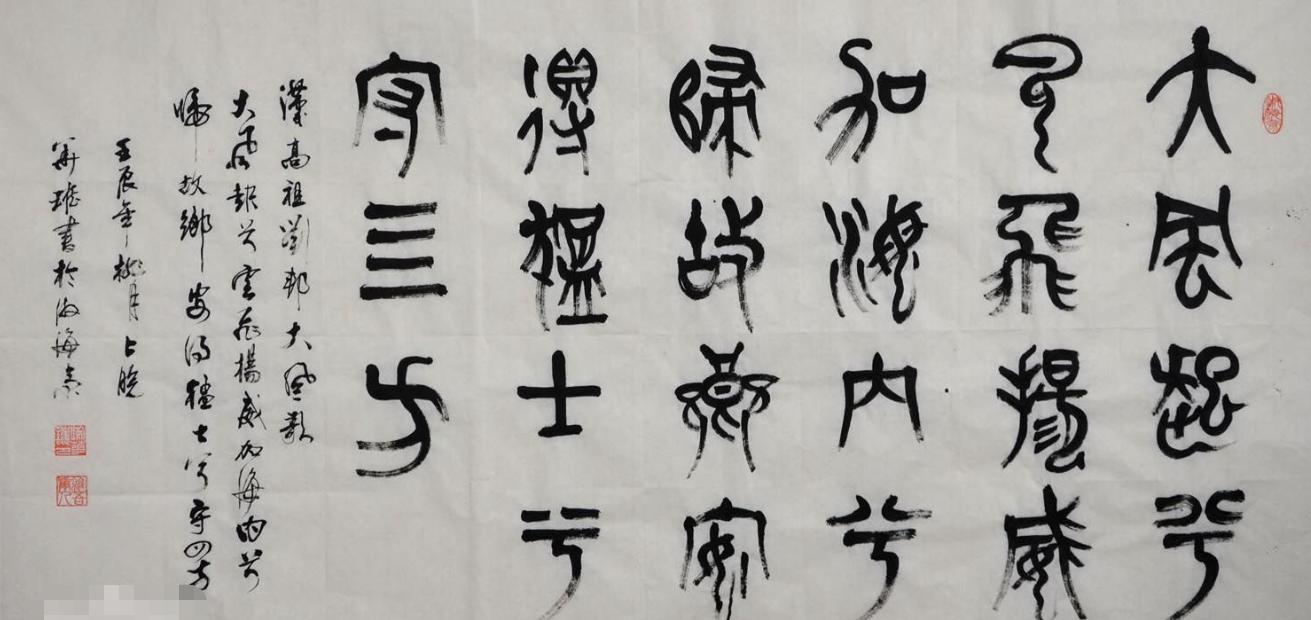 大風起兮
云飛揚威
加海内兮
歸故鄉安
得猛士兮
守四方
漢高祖劉邦大風歌
大風起兮雲飛揚威加海内兮
歸故鄉安得猛士兮守四方
壬辰年桃月上晥
書於海